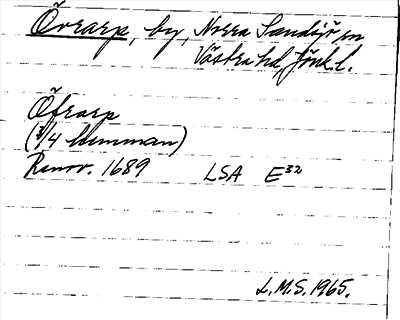 Övrarp, by, Norra Sandsjö sn
Västra hd, Jönk. l.
Öfrarp
(3/4 hemman)
Renov. 1689 LSA E³²
L.M.S. 1965.